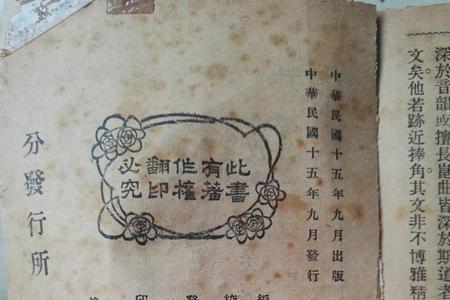 深於音韻或擅長崑曲皆深於斯道者
文矣他若跡近捧角其文非不博雅精
中華民國十五年九月出版
中華民國十五年九月發行
此書有著作權翻印必究
分發行所